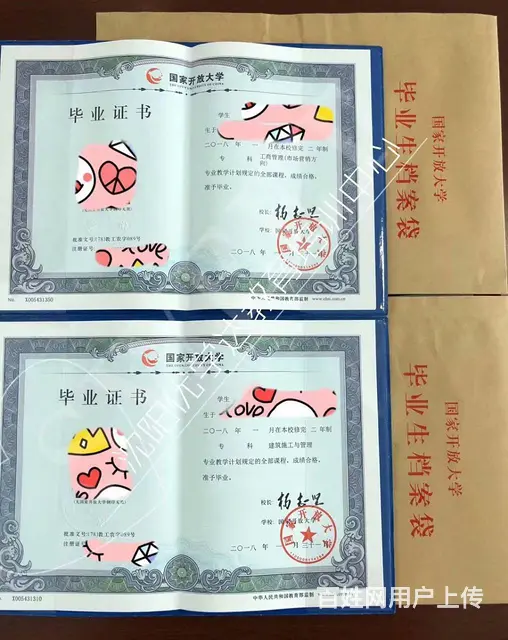 国家开放大学
THE OPEN UNIVERSITY OF CHINA
毕业证书
学生
生于
二〇一八年 一 月在本校修完 二 年制
专 科 工商管理(市场营销方向)
专业教学计划规定的全部课程,成绩合格,
准予毕业。
校长:
学校:国家开放大学
批准文号:(78)教工农字089号
注册证号:
二〇一八年
No. X005431350
中华人民共和国教育部监制
国家开放大学
毕业生档案袋
国家开放大学
THE OPEN UNIVERSITY OF CHINA
毕业证书
学生
生于
二〇一八年 一 月在本校修完 二 年制
专 科 建筑施工与管理
专业教学计划规定的全部课程,成绩合格,
准予毕业。
校长:
学校:国家开放大学
批准文号:(78)教工农字089号
注册证号:
二〇一八年 一月三十一
X005431310
中华人民共和国教育部监制
国家开放大学
毕业生档案袋
百姓网用户上传